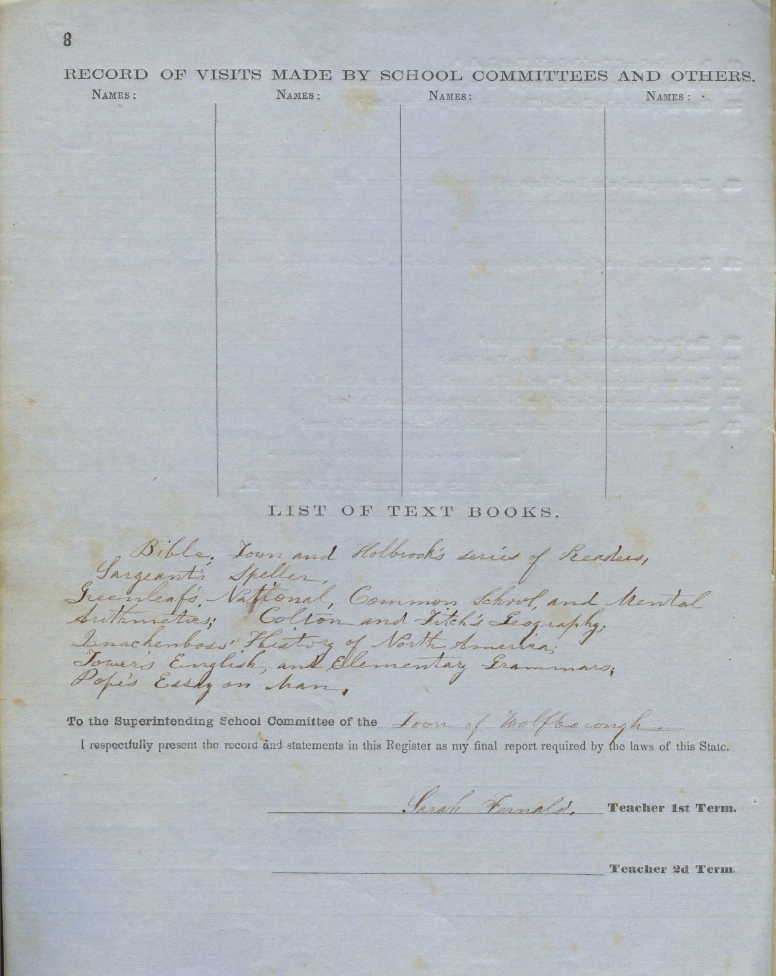 8
RECORD OF VISITS MADE BY SCHOOL COMMITTEES AND OTHERS.
NAMES: NAMES: NAMES: NAMES:
LIST OF TEXT BOOKS.
Bible, Town and Holbrook's series of Readers,
Sargeant's Speller,
Greenleaf's, National, Common School, and Mental
Arithmetics; Colton and Fitch's Geography,
Quackenboss' History of North America,
Tower's English, and Elementary Grammars,
Pope's Essay on Man.
To the Superintending School Committee of the Town of Wolfborough
I respectfully present the record and statements in this Register as my final report required by the laws of this State.
Sarah Fernald. Teacher 1st Term.
Teacher 2d Term